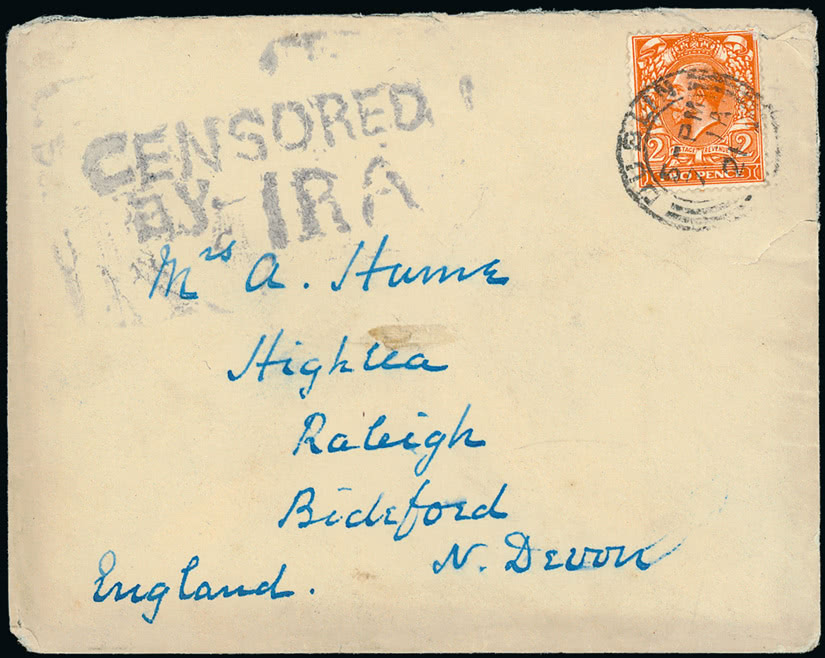 CENSORED
BY IRA
DUBLIN
POSTAGE REVENUE
2 2
TWOPENCE
Mrs A. Hume
Highlea
Raleigh
Bideford
N. Devon
England.